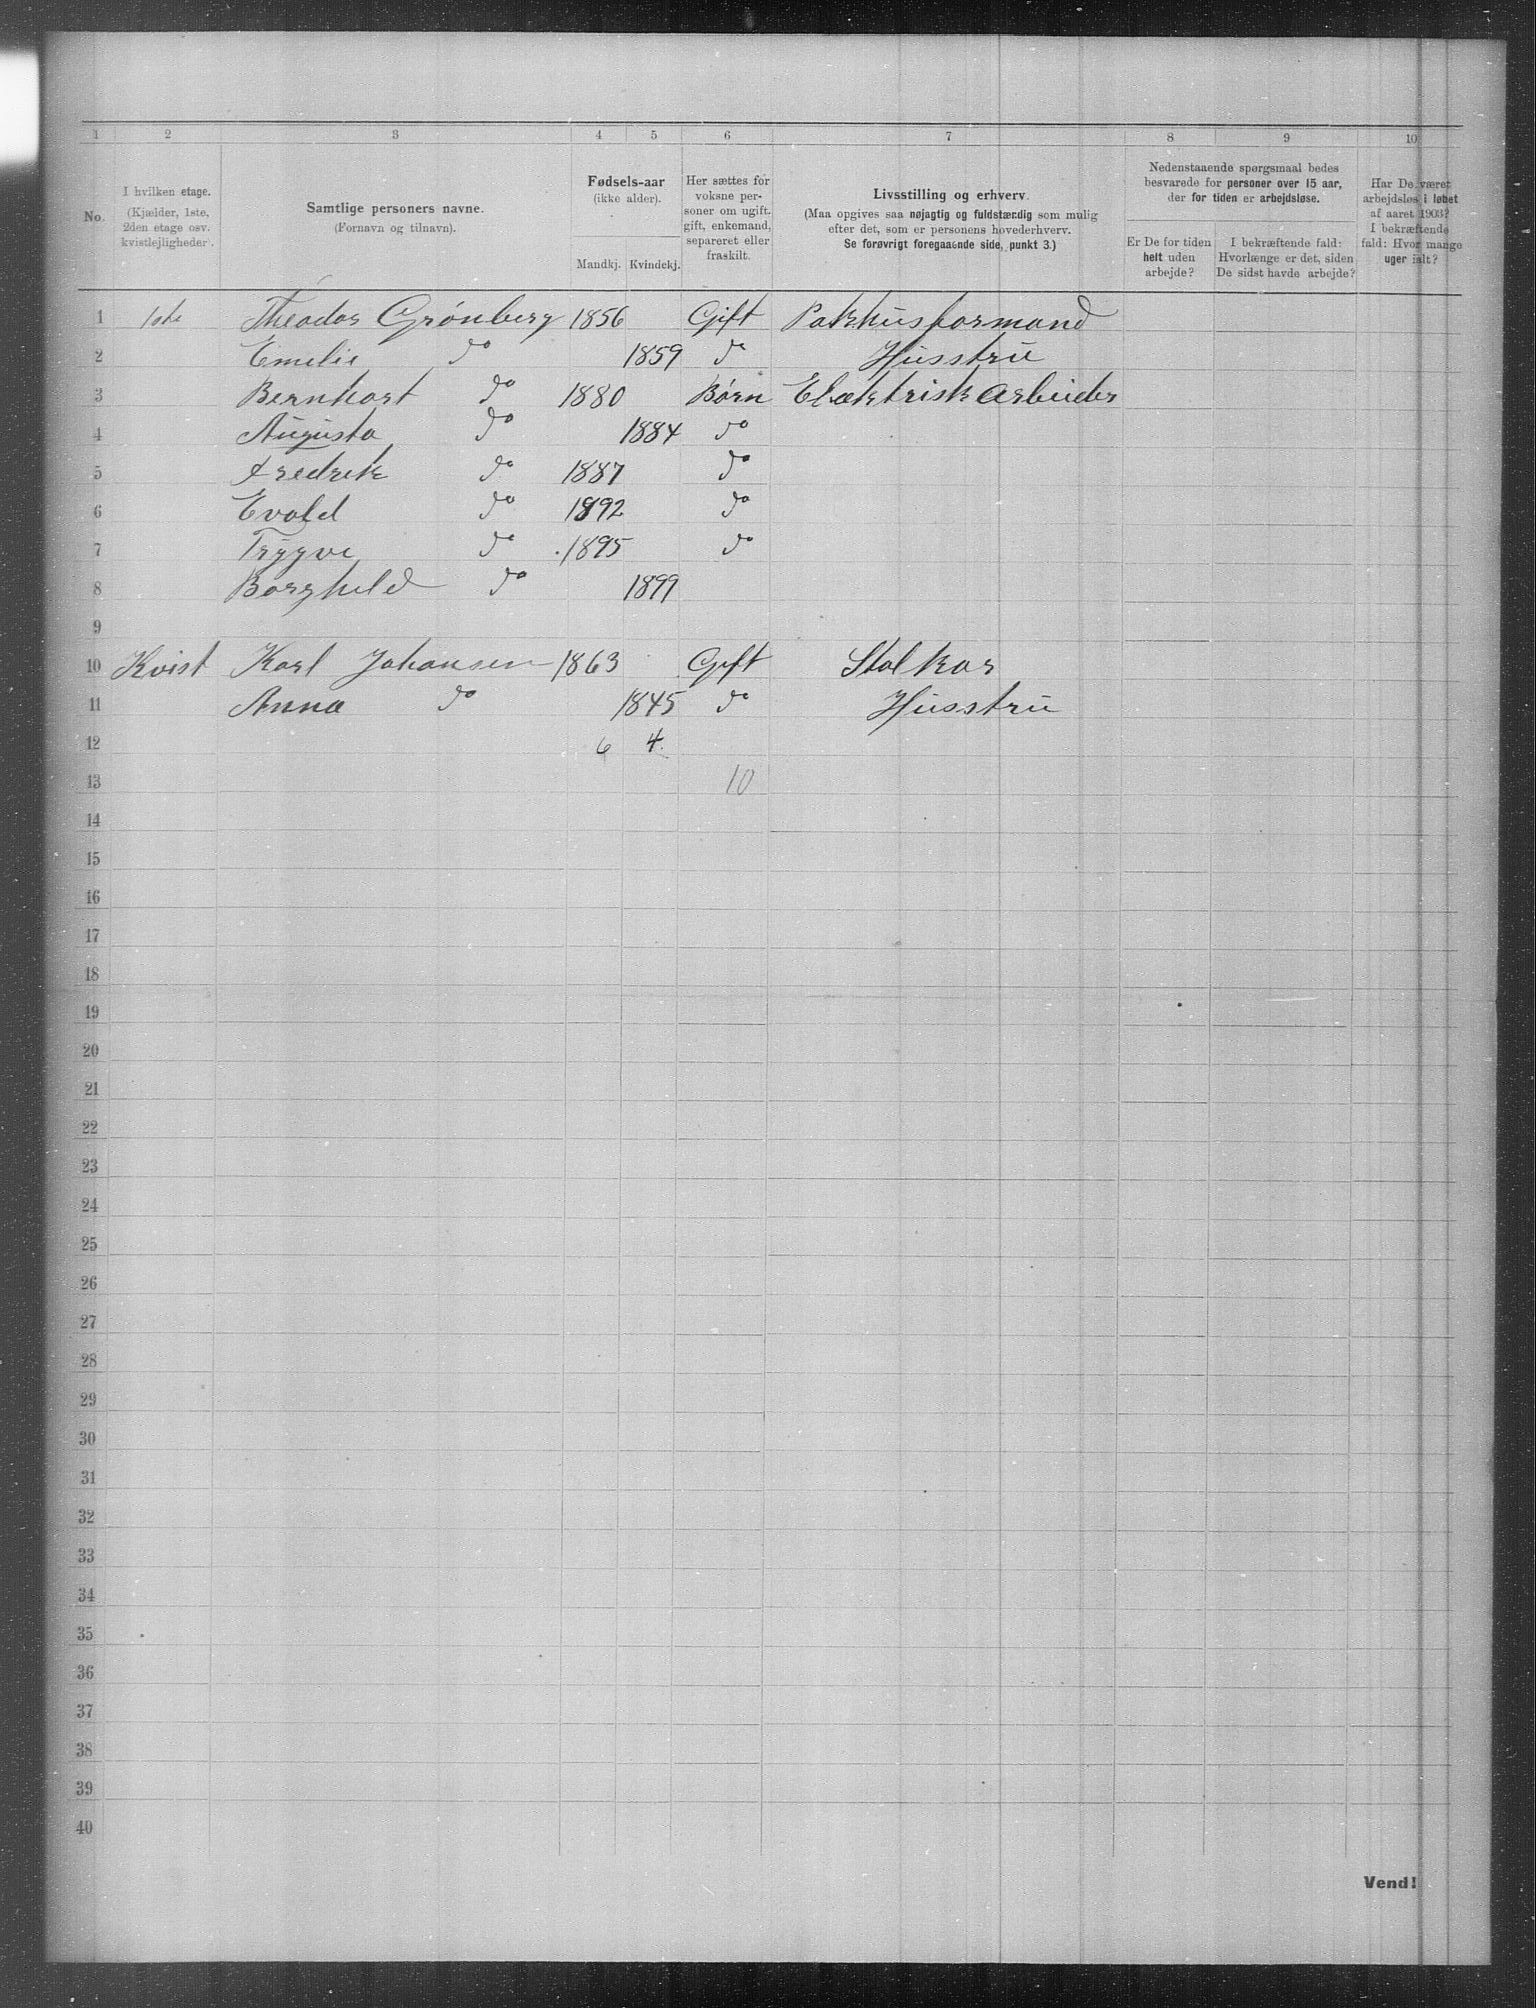 1 2 3 4 5 6 7 8 9 10
No.
I hvilken etage.
(Kjælder, 1ste,
2den etage osv.
kvistlejligheder).
Samtlige personers navne.
(Fornavn og tilnavn).
Fødsels-aar
(ikke alder).
Mandkj. Kvindekj.
Her sættes for
voksne per-
soner om ugift,
gift, enkemand,
separeret eller
fraskilt.
Livsstilling og erhverv.
(Maa opgives saa nøjagtig og fuldstærdig som mulig
efter det, som er personens hovederhverv.
Se forøvrigt foregaaende side, punkt 3.)
Nedenstaaende spørgsmaal bedes
besvarede for personer over 15 aar,
der for tiden er arbejdsløse.
Er De for tiden
helt uden
arbejde?
I bekræftende fald:
Hvorlænge er det, siden
De sidst havde arbejde?
Har De været
arbejdsløs i løbet
af aaret 1903?
I bekræftende
fald: Hvor mange
uger ialt?
1 1ste Theodor Grönberg 1856 Gift Pakhusformand
2 Emelie do 1859 do Husstrü
3 Bernhart do 1880 Børn Elæktrisk arbeider
4 Augusta do 1884 do
5 Fredrik do 1887 do
6 Evald do 1892 do
7 Trygve do 1895 do
8 Borghild do 1899
9
10 Kvist Karl Johansen 1863 Gift Stalkar
11 Anna do 1845 do Husstrü
12 6 4
13 10
14
15
16
17
18
19
20
21
22
23
24
25
26
27
28
29
30
31
32
33
34
35
36
37
38
39
40
Vend!